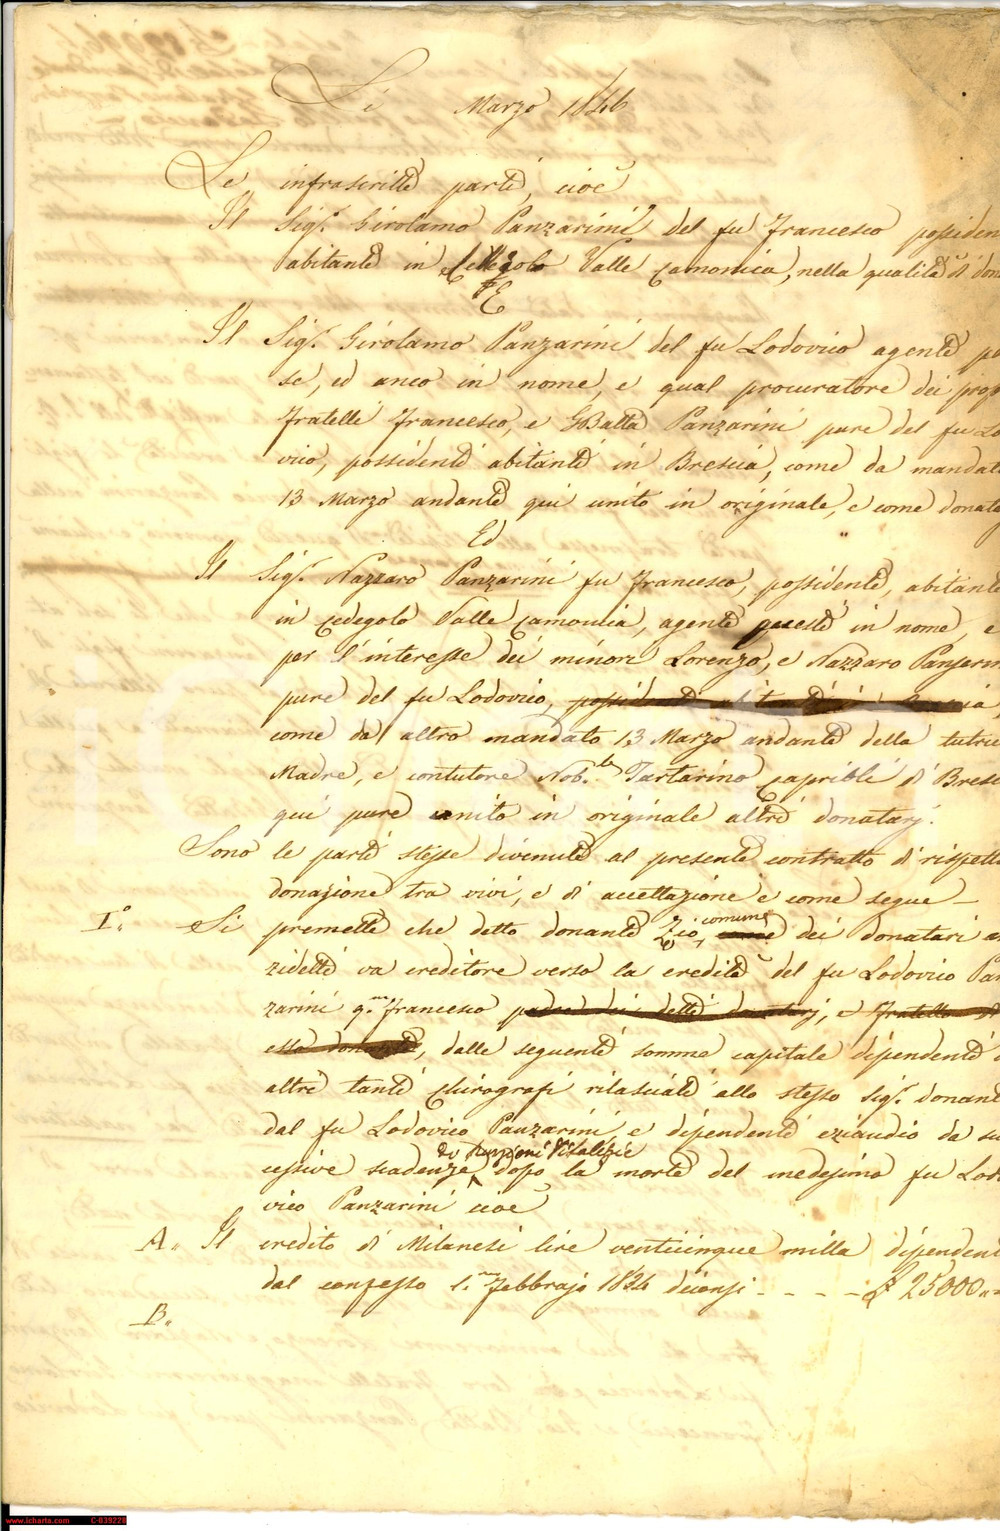 Li Marzo 1846
Le infrascritte parti, cioè
Il Sigr. Girolamo Panzarini del fu Francesco possiden
abitante in Cedegolo Valle Camonica, nella qualità di don
E
Il Sigr. Girolamo Panzarini del fu Lodovico agente pe
se, ed anco in nome, e qual procuratore dei prop
fratelli Francesco, e GBatta Panzarini pure del fu Lo
vico, possidenti abitanti in Brescia, come da mandat
13 Marzo andante qui unito in originale, e come donata
Ed
Il Sigr. Nazzaro Panzarini fu Francesco, possidente, abitante
in Cedegolo Valle Camonica, agente questi in nome, e
per l'interesse dei minori Lorenzo, e Nazzaro Panzarin
pure del fu Lodovico,
come da altro mandato 13 Marzo andante della tutric
Madre, e contutore Nob.le Tartarino Caprioli di Bresc
qui pure unito in originale altri donatarj.
Sono le parti stesse divenute al presente contratto di rispetti
donazione tra vivi, e di accettazione e come segue —
I.° Si premette che detto donante Zio comune dei donatari an
zidetti va creditore verso la eredità del fu Lodovico Pan
zarini q.m Francesco padre dei detti donatarj, e fratello di
esso donante, dalle seguenti somme capitale dipendenti d
altri tanti Chirografi rilasciati allo stesso Sigr. donant
dal fu Lodovico Panzarini e dipendenti eziandio da su
cessive scadenze di Pensioni Vitalizie dopo la morte del medesimo fu Lod
vico Panzarini cioè
A. Il credito di Milanesi lire venticinque milla dipendent
dal confesso 1.mo Febbrajo 1834 diconsi - - - - £ 25000
B.
www.icharta.com C-039228